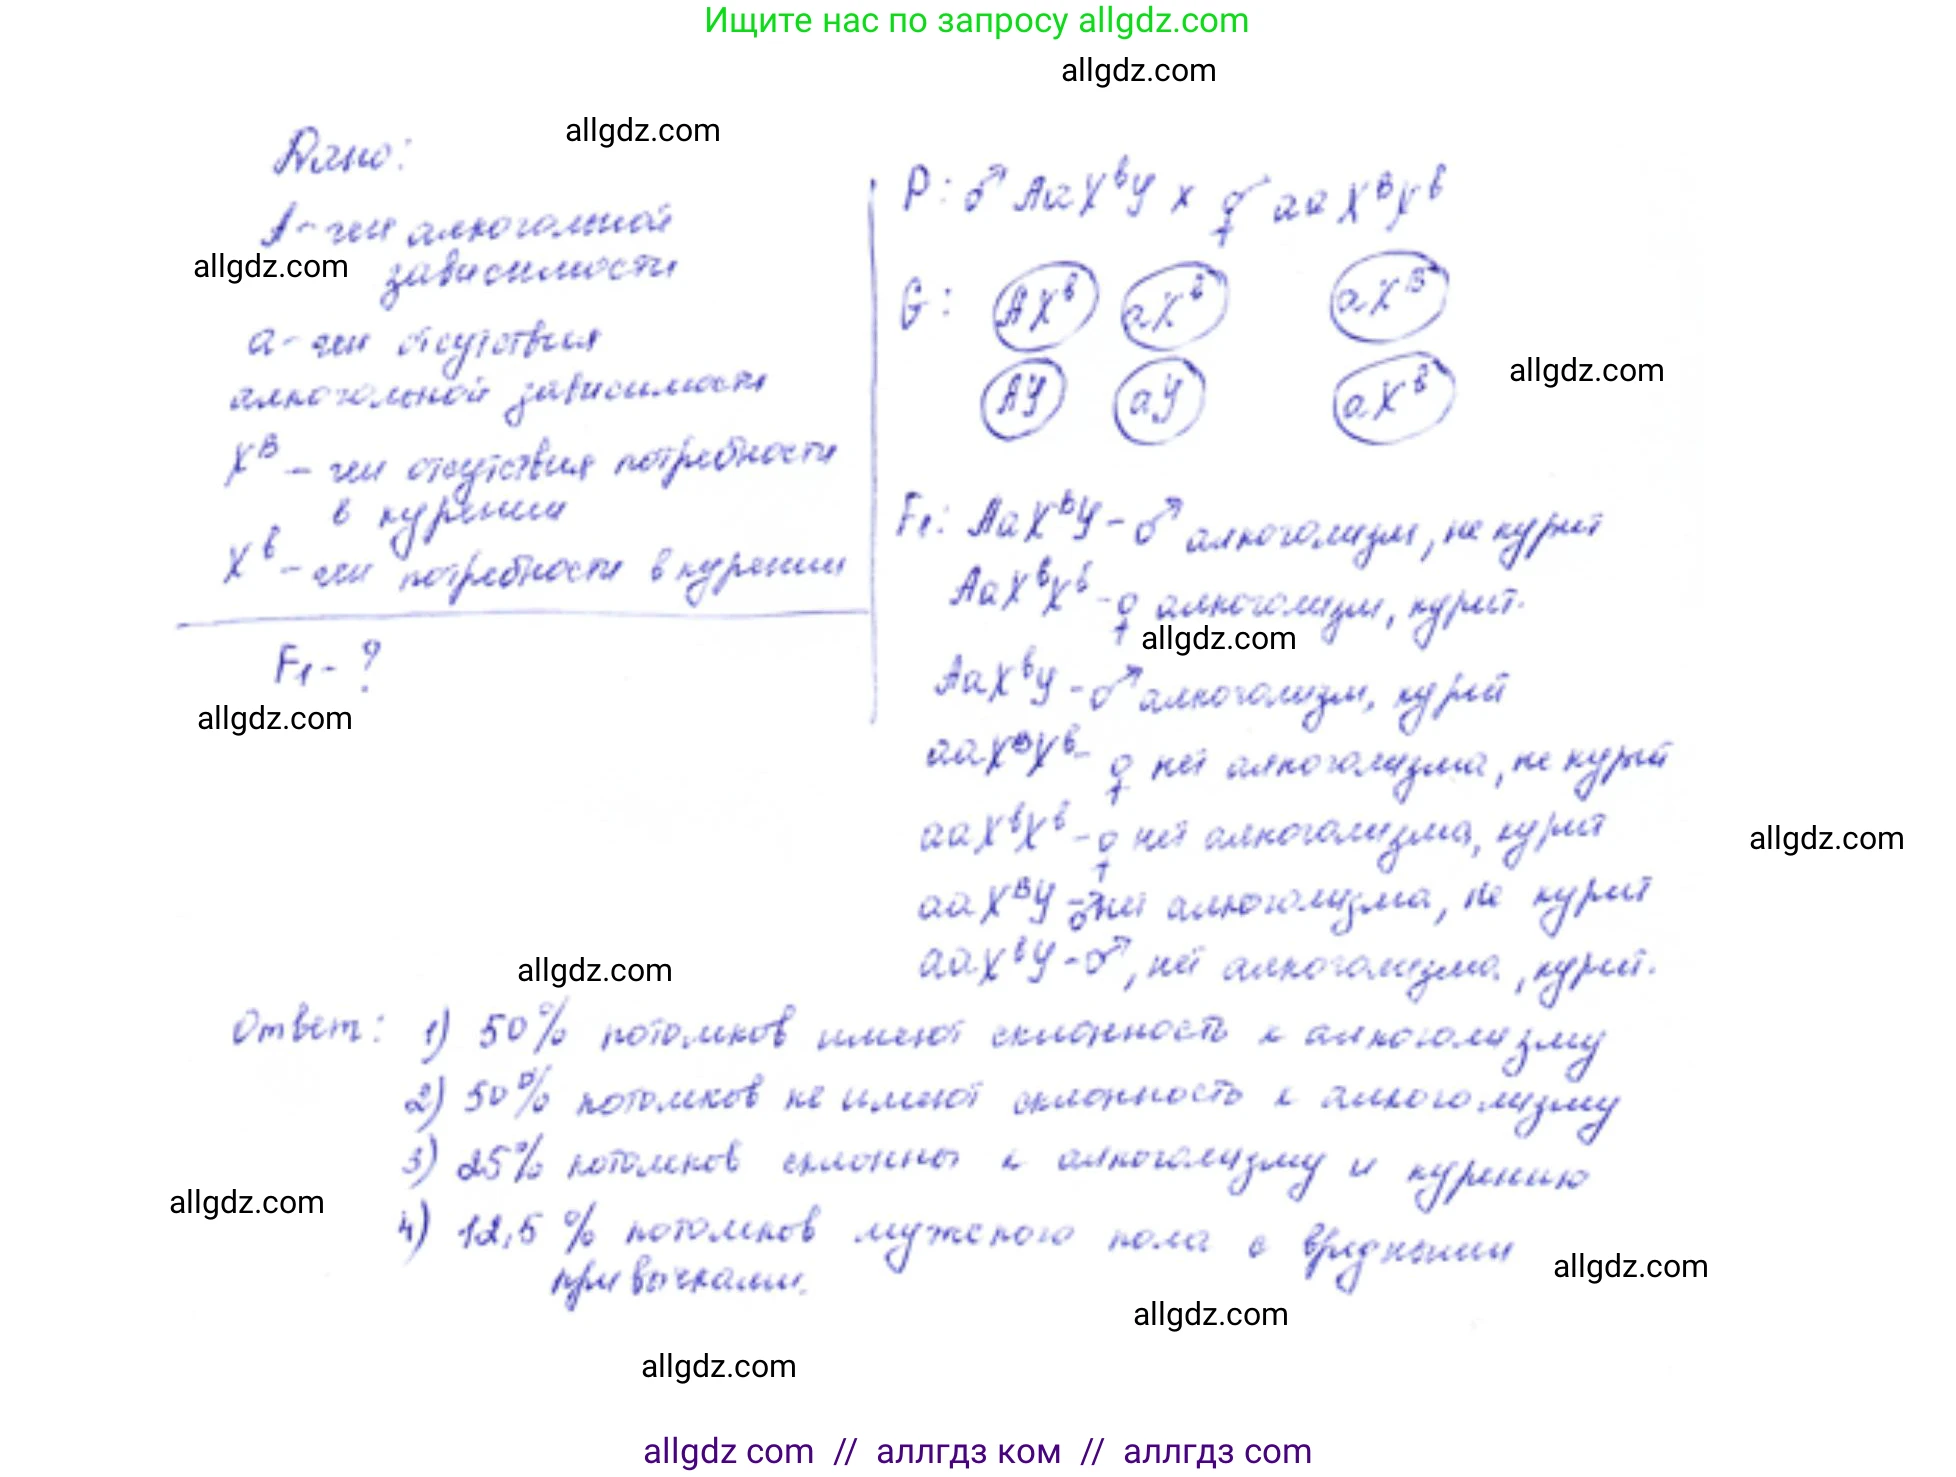 Ищите нас по запросу allgdz.com
allgdz.com
allgdz.com
Дано:
A - ген алкогольной
зависимости
allgdz.com
a - ген отсутствия
алкогольной зависимости
X^B - ген отсутствия потребности
в курении
X^b - ген потребности в курении
F₁ - ?
allgdz.com
P: ♂ AaX^bY x ♀ aaX^BX^b
G: AX^b aX^b aX^B
AY aY aX^b
allgdz.com
F₁: AaX^BY - ♂ алкоголизм, не курит
AaX^bX^b - ♀ алкоголизм, курит.
allgdz.com
AaX^bY - ♂ алкоголизм, курит
aaX^BX^b - ♀ нет алкоголизма, не курит
aaX^bX^b - ♀ нет алкоголизма, курит
allgdz.com
aaX^BY - ♂ нет алкоголизма, не курит
aaX^bY - ♂, нет алкоголизма, курит.
allgdz.com
Ответ: 1) 50% потомков имеют склонность к алкоголизму
2) 50% потомков не имеют склонность к алкоголизму
3) 25% потомков склонны к алкоголизму и курению
allgdz.com
4) 12,5 % потомков мужского пола с вредными
привычками.
allgdz.com
allgdz.com
allgdz.com
allgdz com // аллгдз ком // аллгдз com